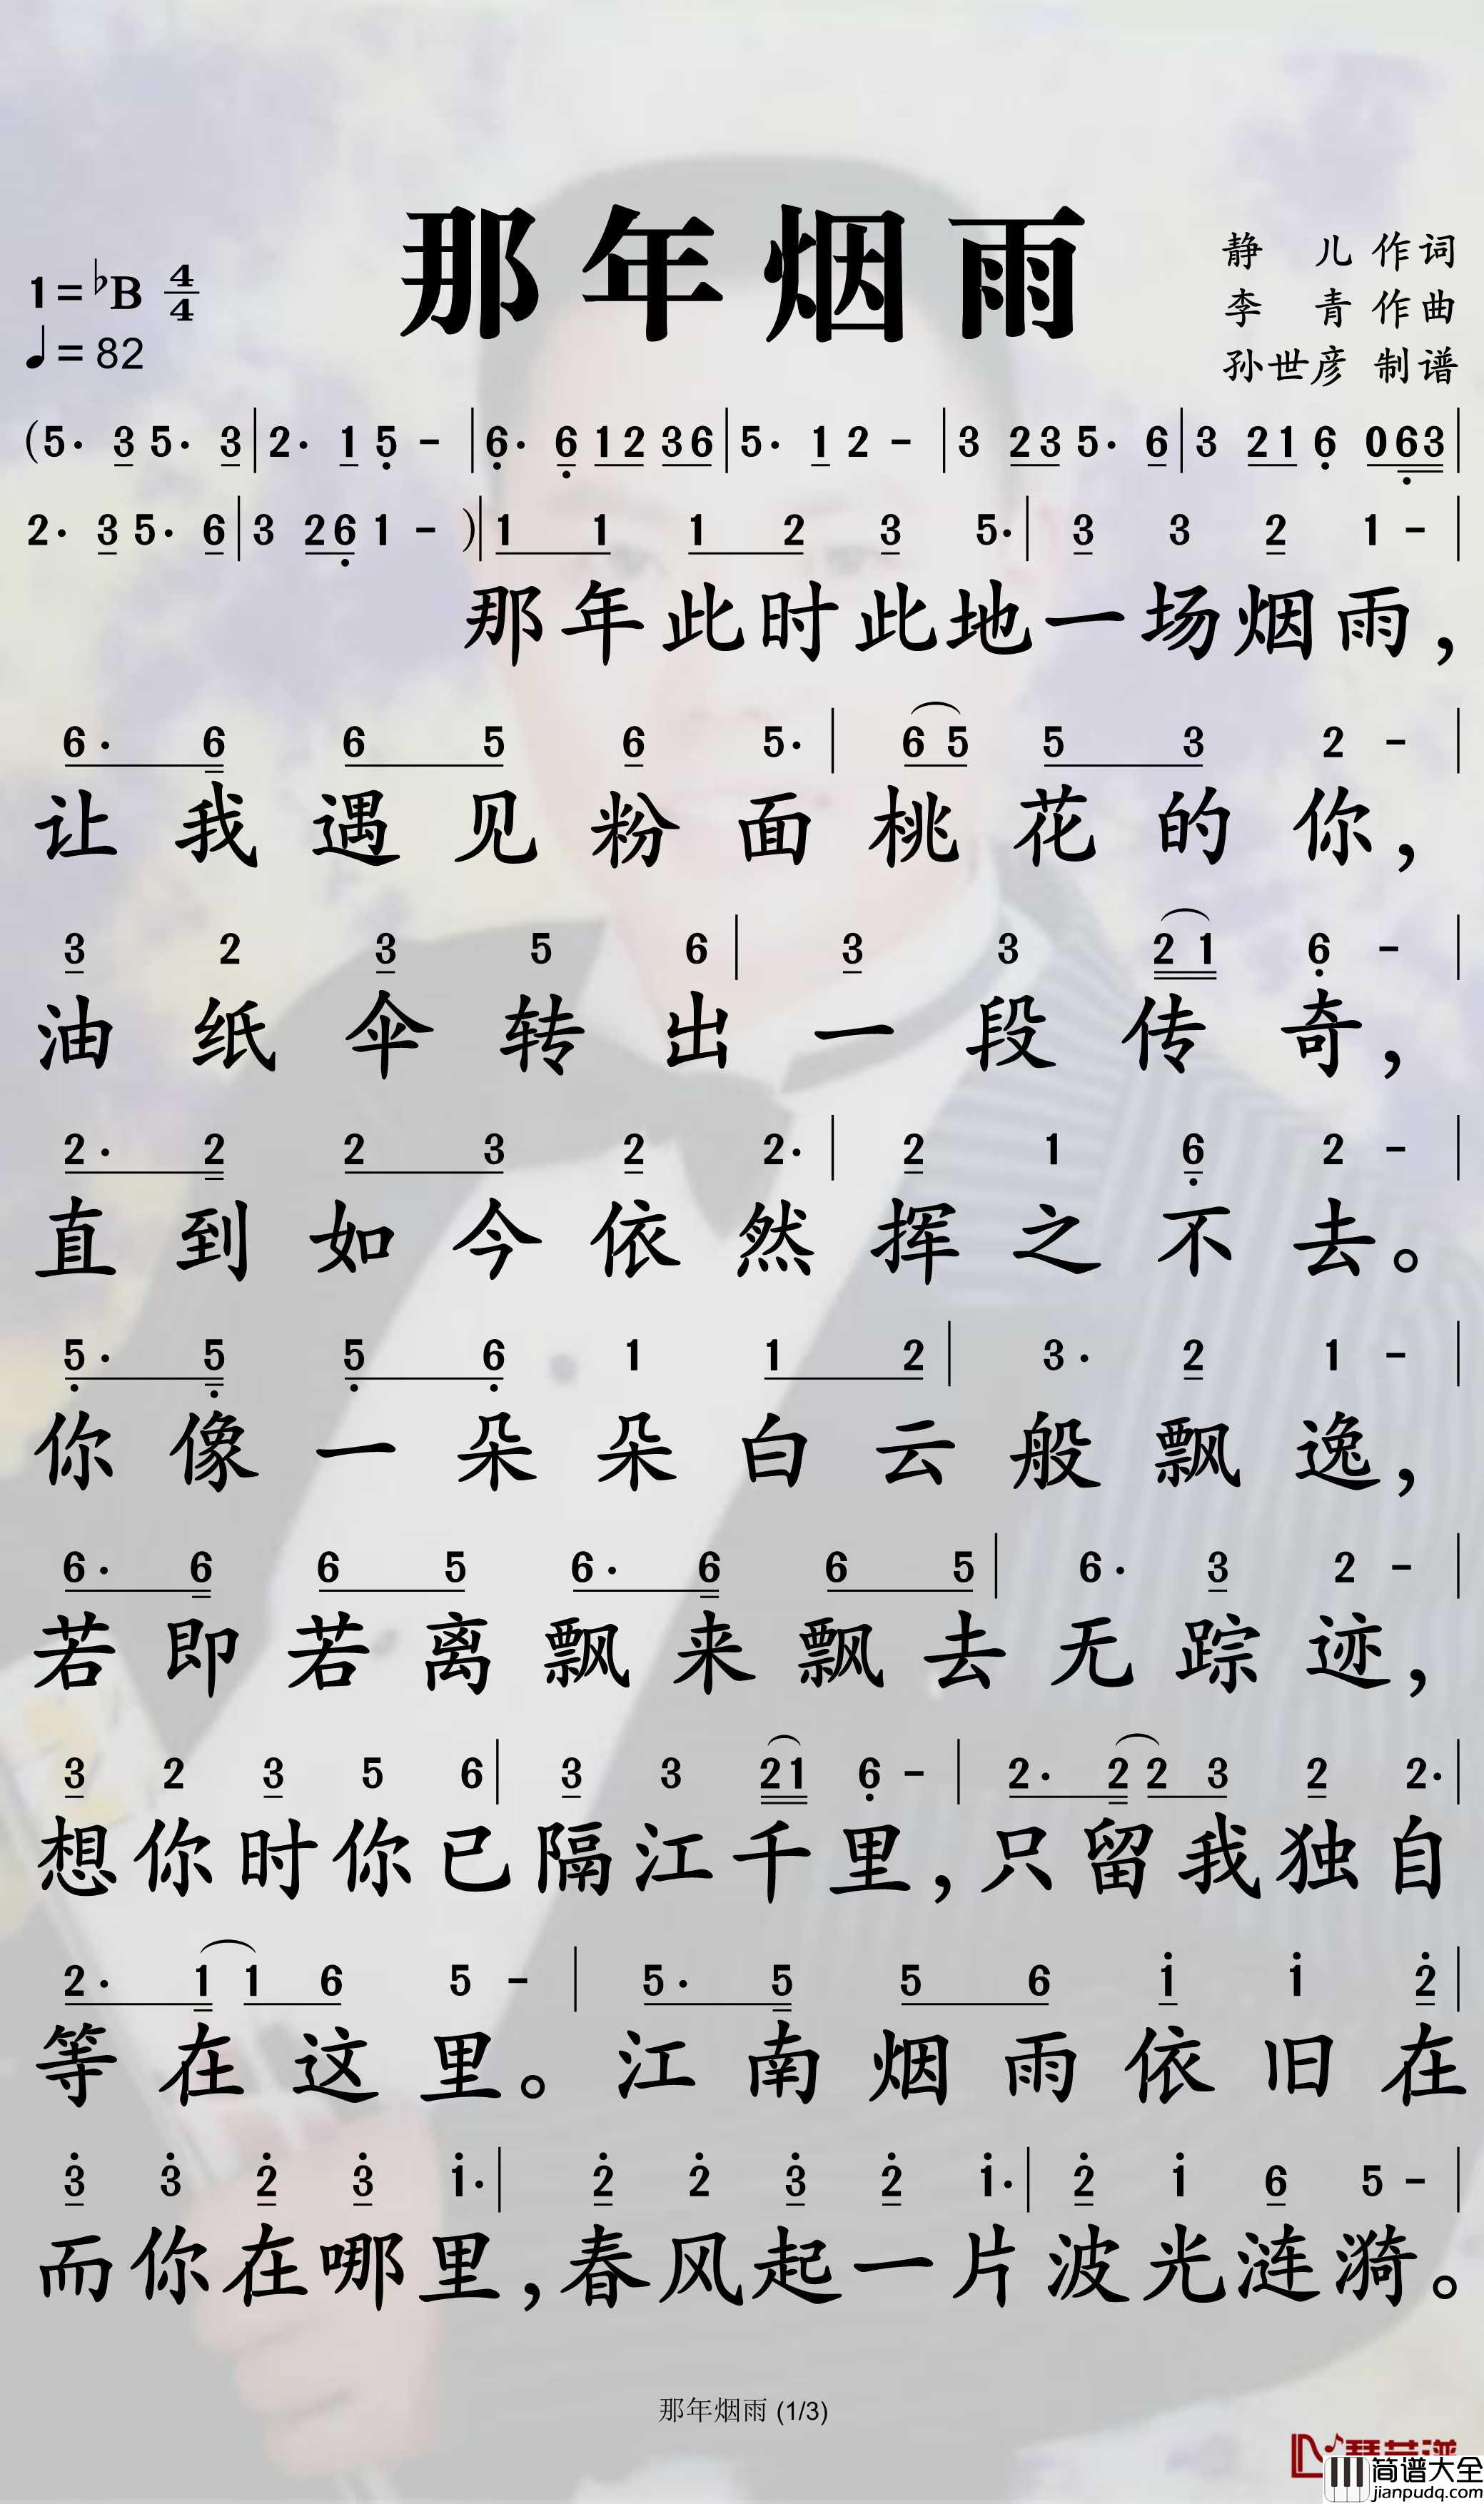 那年烟雨
1=♭B 4/4
♩=82
静 儿 作词
李 青 作曲
孙世彦 制谱
(5· 3 5· 3 | 2· 1 5̣ - | 6̣· 6̣ 1 2 3 6 | 5· 1 2 - | 3 2 3 5· 6 | 3 2 1 6̣ 0 6̣ 3 |
2· 3 5· 6 | 3 2 6̣ 1 - )| 1 1 1 2 3 5· | 3 3 2 1 - |
那年此时此地一场烟雨，
6· 6 6 5 6 5· | 6 5 5 3 2 - |
让我遇见粉面桃花的你，
3 2 3 5 6 | 3 3 2 1 6̣ - |
油纸伞转出一段传奇，
2· 2 2 3 2 2· | 2 1 6̣ 2 - |
直到如今依然挥之不去。
5̣· 5̣ 5̣ 6̣ 1 1 2 | 3· 2 1 - |
你像一朵朵白云般飘逸，
6· 6 6 5 6· 6 6 5 | 6· 3 2 - |
若即若离飘来飘去无踪迹，
3 2 3 5 6 | 3 3 2 1 6̣ - | 2· 2 2 3 2 2· |
想你时你已隔江千里，只留我独自
2· 1 1 6 5 - | 5· 5 5 6 1̇ 1̇ 2̇ |
等在这里。江南烟雨依旧在
3̇ 3̇ 2̇ 3̇ 1̇· | 2̇ 2̇ 3̇ 2̇ 1̇· | 2̇ 1̇ 6 5 - |
而你在哪里，春风起一片波光涟漪。
那年烟雨 (1/3)
简谱大全
jianpudq.com